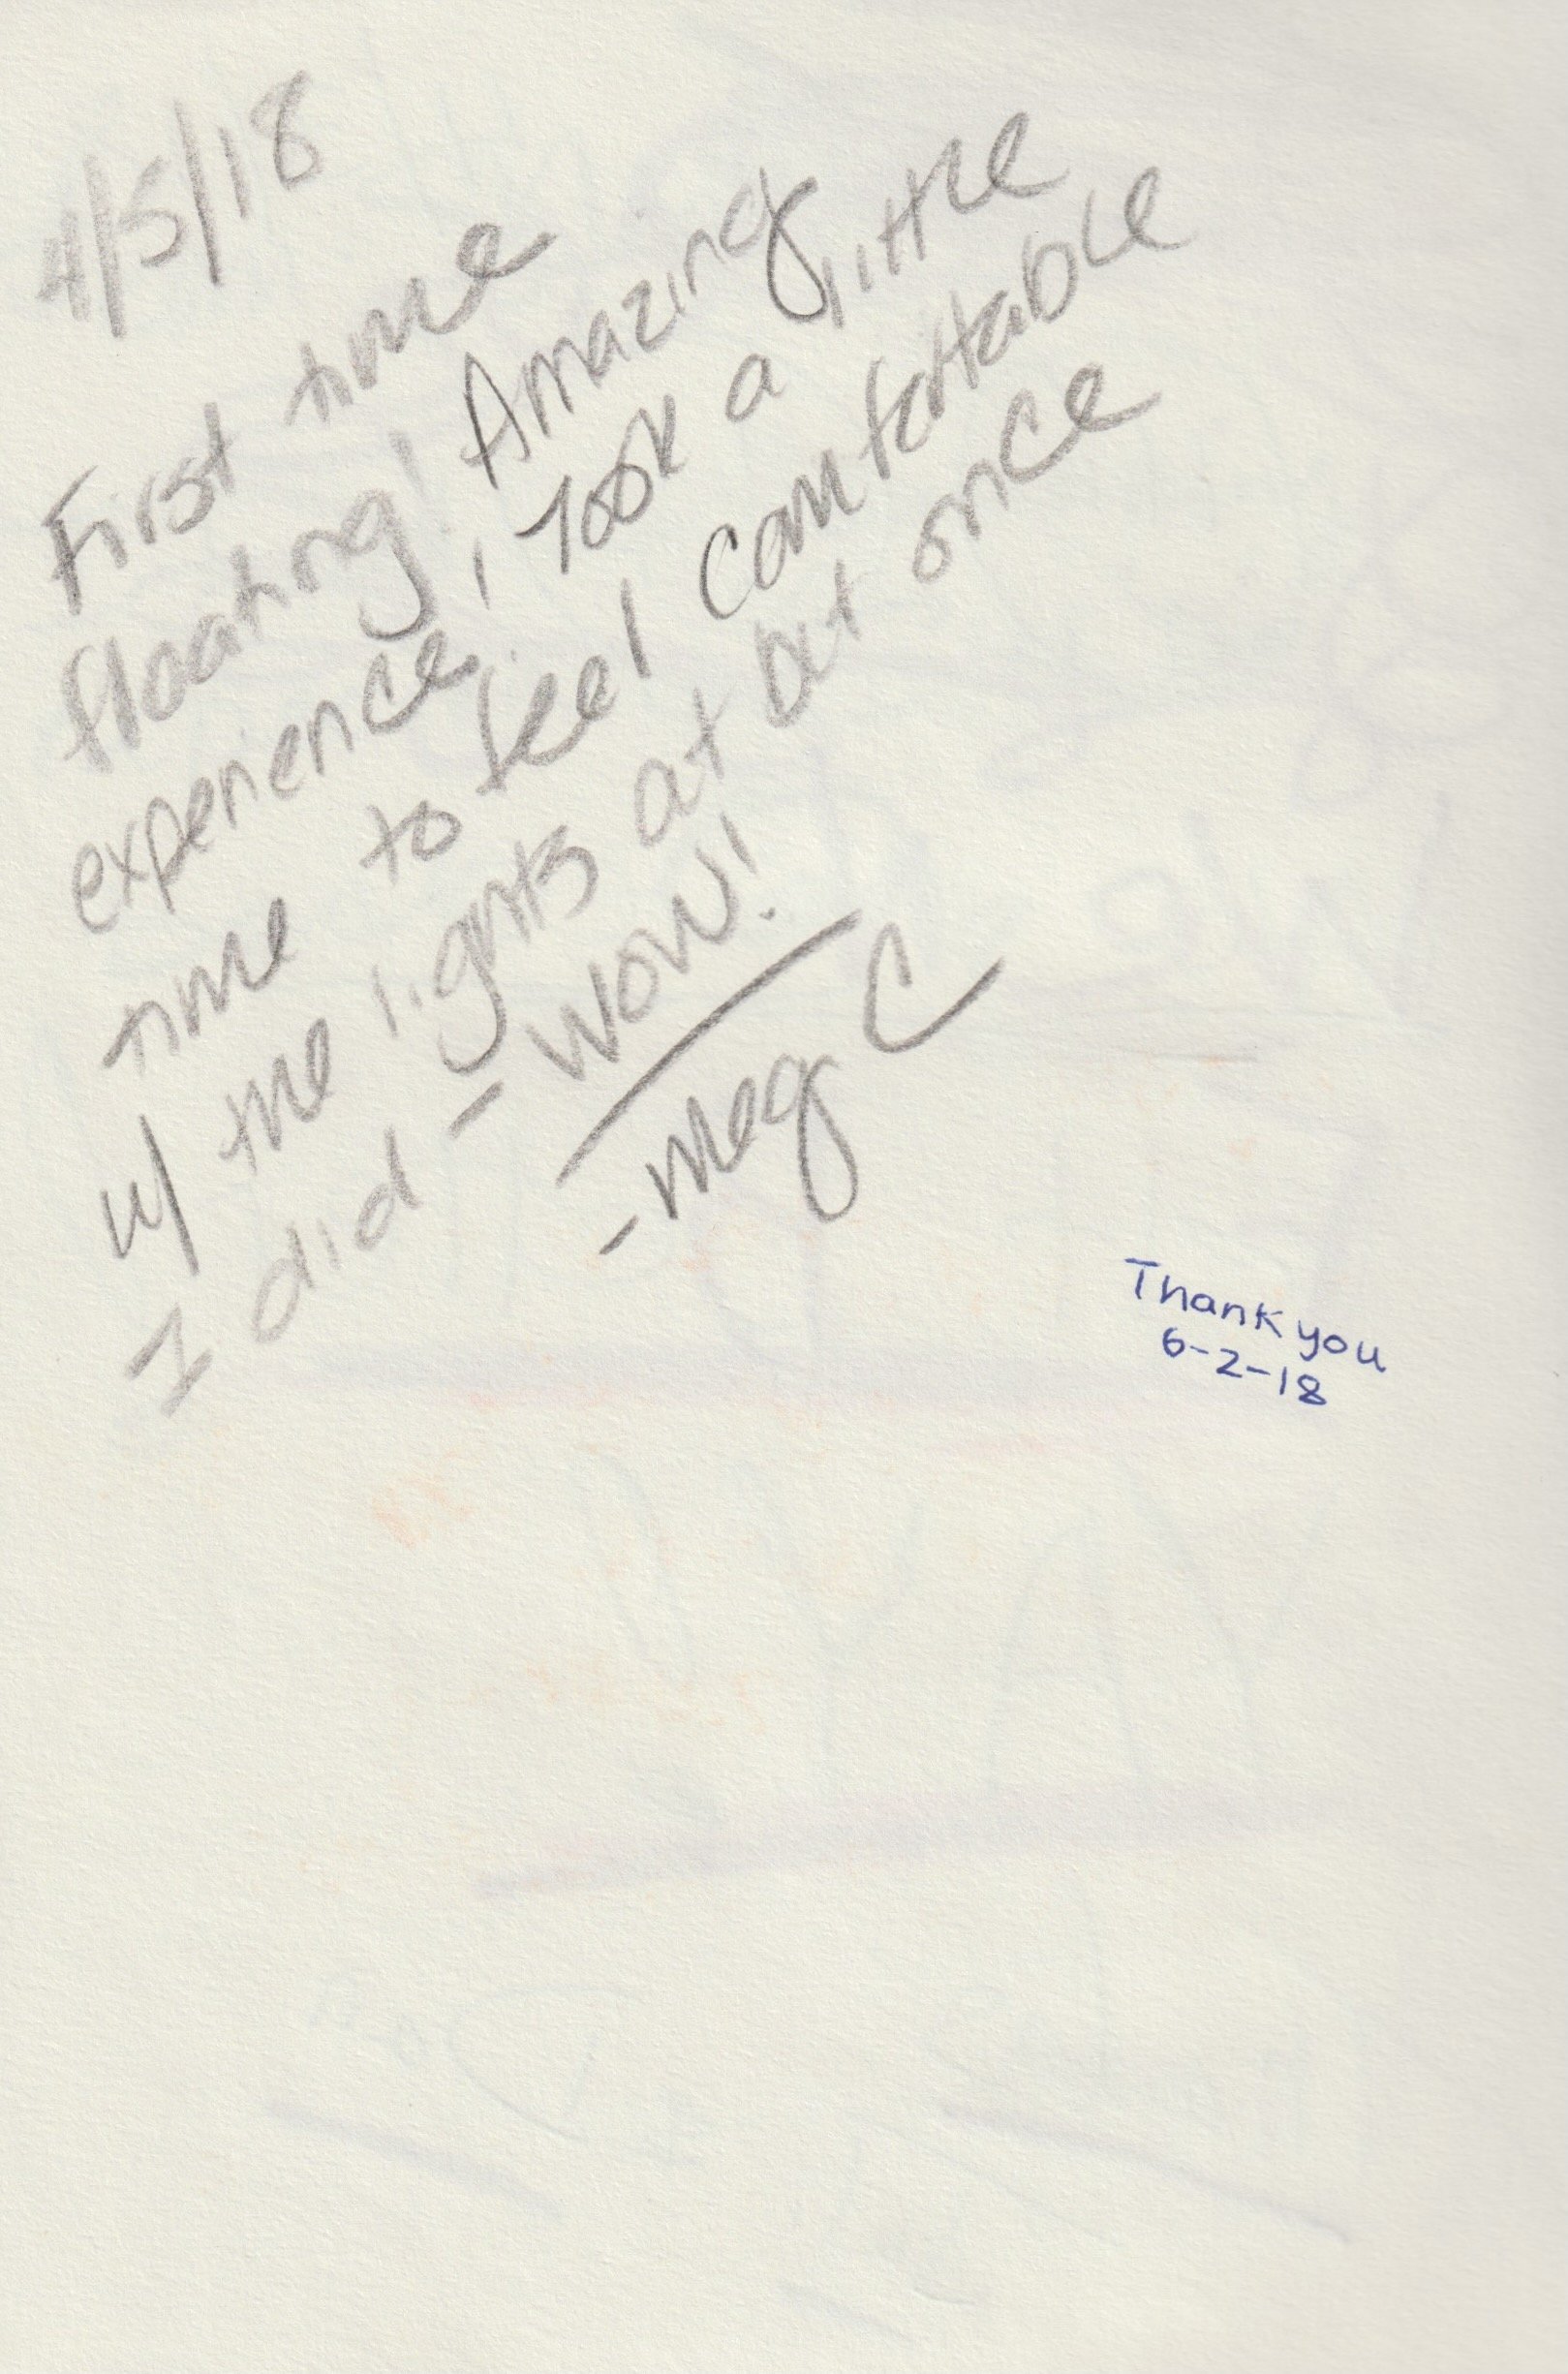 4/5/18
First time
floating! Amazing
experience! Took a little
time to feel Comfortable
w/ the lights out but once
I did - wow!
- Meg C
Thank you
6-2-18